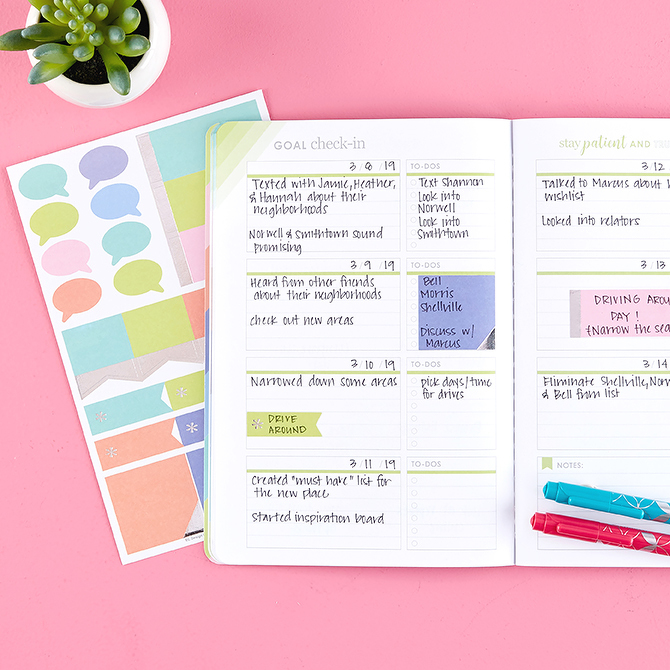 GOAL check-in
3/8/19
Texted with Jamie, Heather,
& Hannah about their
neighborhoods
Norwell & Smithtown sound
promising
TO-DOS
Text Shannon
Look into
Norwell
Look into
Smithtown
3/9/19
Heard from other friends
about their neighborhoods
check out new areas
TO-DOS
Bell
Morris
Shellville
Discuss w/
Marcus
3/10/19
Narrowed down some areas
DRIVE
AROUND
TO-DOS
pick days/time
for drives
3/11/19
Created "must have" list for
the new place
Started inspiration board
TO-DOS
stay patient AND
3/12
Talked to Marcus about
wishlist
Looked into relators
3/13
DRIVING
DAY!
(Narrow the
3/14
Eliminate Shellville,
& Bell from list
NOTES: